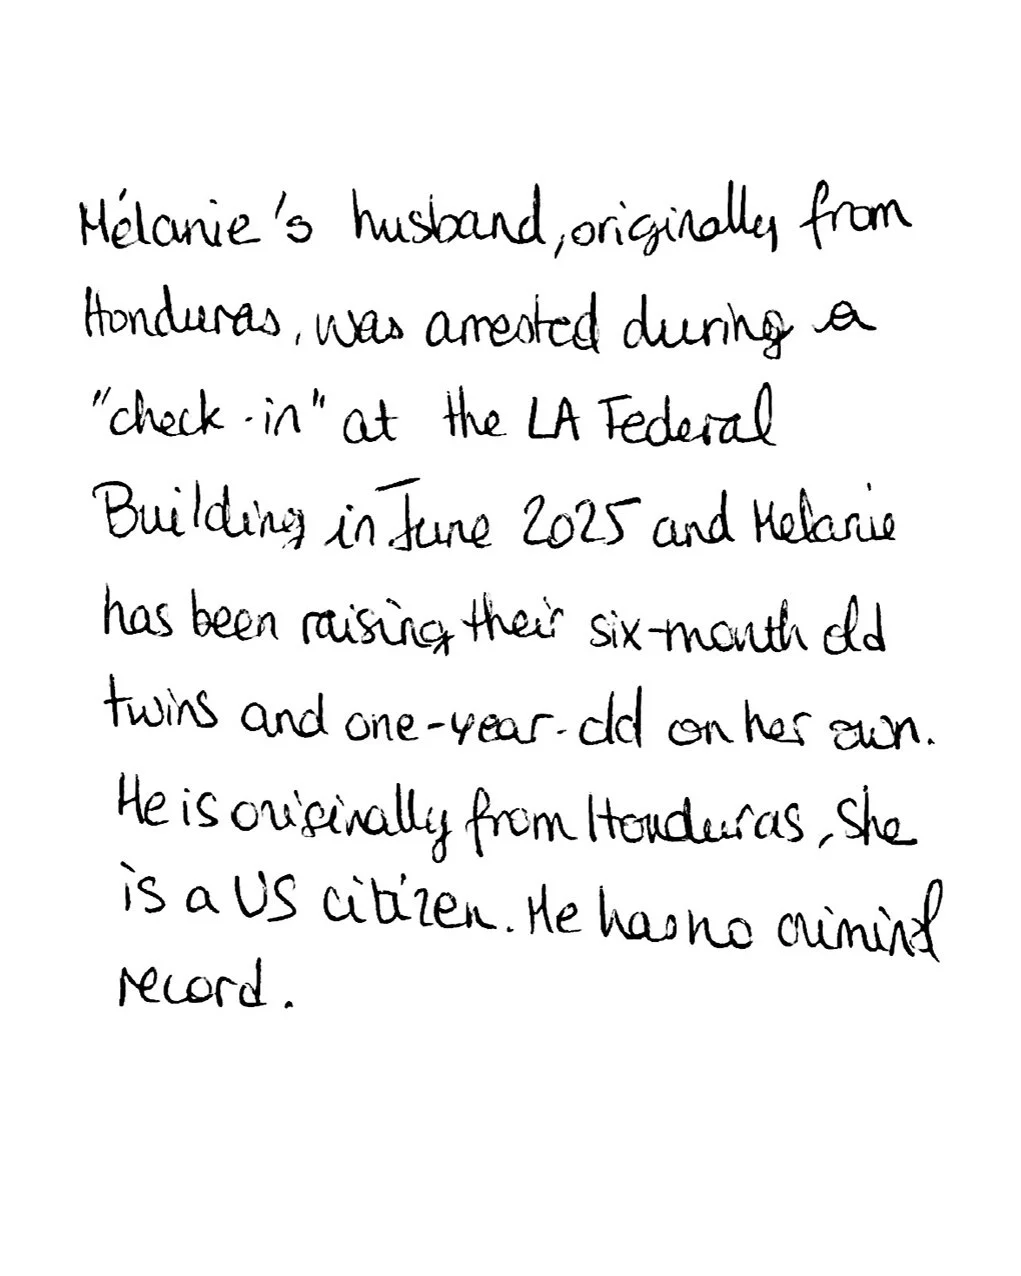 Mélanie's husband, originally from
Honduras, was arrested during a
"check-in" at the LA Federal
Building in June 2025 and Melanie
has been raising their six-month old
twins and one-year-old on her own.
He is originally from Honduras, she
is a US citizen. He has no criminal
record.